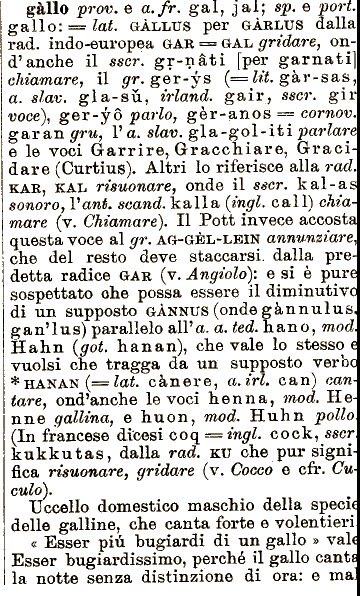 gàllo prov. e a. fr. gal, jal; sp. e port.
gallo: = lat. GÀLLUS per GÀRLUS dalla
rad. indo-europea GAR = GAL gridare, on-
d'anche il sscr. gṛ-ṇâti [per garnati]
chiamare, il gr. ger-ýs (= lit. gàr-sas,
a. slav. gla-sŭ, irland. gair, sscr. gir
voce), ger-ýô parlo, gèr-anos = cornov.
garan gru, l'a. slav. gla-gol-iti parlare
e le voci Garrire, Gracchiare, Graci-
dare (Curtius). Altri lo riferisce alla rad.
KAR, KAL risuonare, onde il sscr. kal-as
sonoro, l'ant. scand. kalla (ingl. call) chia-
mare (v. Chiamare). Il Pott invece accosta
questa voce al gr. AG-GÈL-LEIN annunziare,
che del resto deve staccarsi dalla pre-
detta radice GAR (v. Angiolo): e si è pure
sospettato che possa essere il diminutivo
di un supposto GÀNNUS (onde gànnulus,
gan'lus) parallelo all'a. a. ted. hano, mod.
Hahn (got. hanan), che vale lo stesso e
vuolsi che tragga da un supposto verbo
*HANAN (= lat. cànere, a. irl. can) can-
tare, ond'anche le voci henna, mod. He-
nne gallina, e huon, mod. Huhn pollo.
(In francese dicesi coq = ingl. cock, sscr.
kukkutas, dalla rad. KU che pur signi-
fica risuonare, gridare (v. Cocco e cfr. Cu-
culo).
Uccello domestico maschio della specie
delle galline, che canta forte e volentieri.
« Esser piú bugiardi di un gallo » vale
Esser bugiardissimo, perché il gallo canta
la notte senza distinzione di ora: e mai